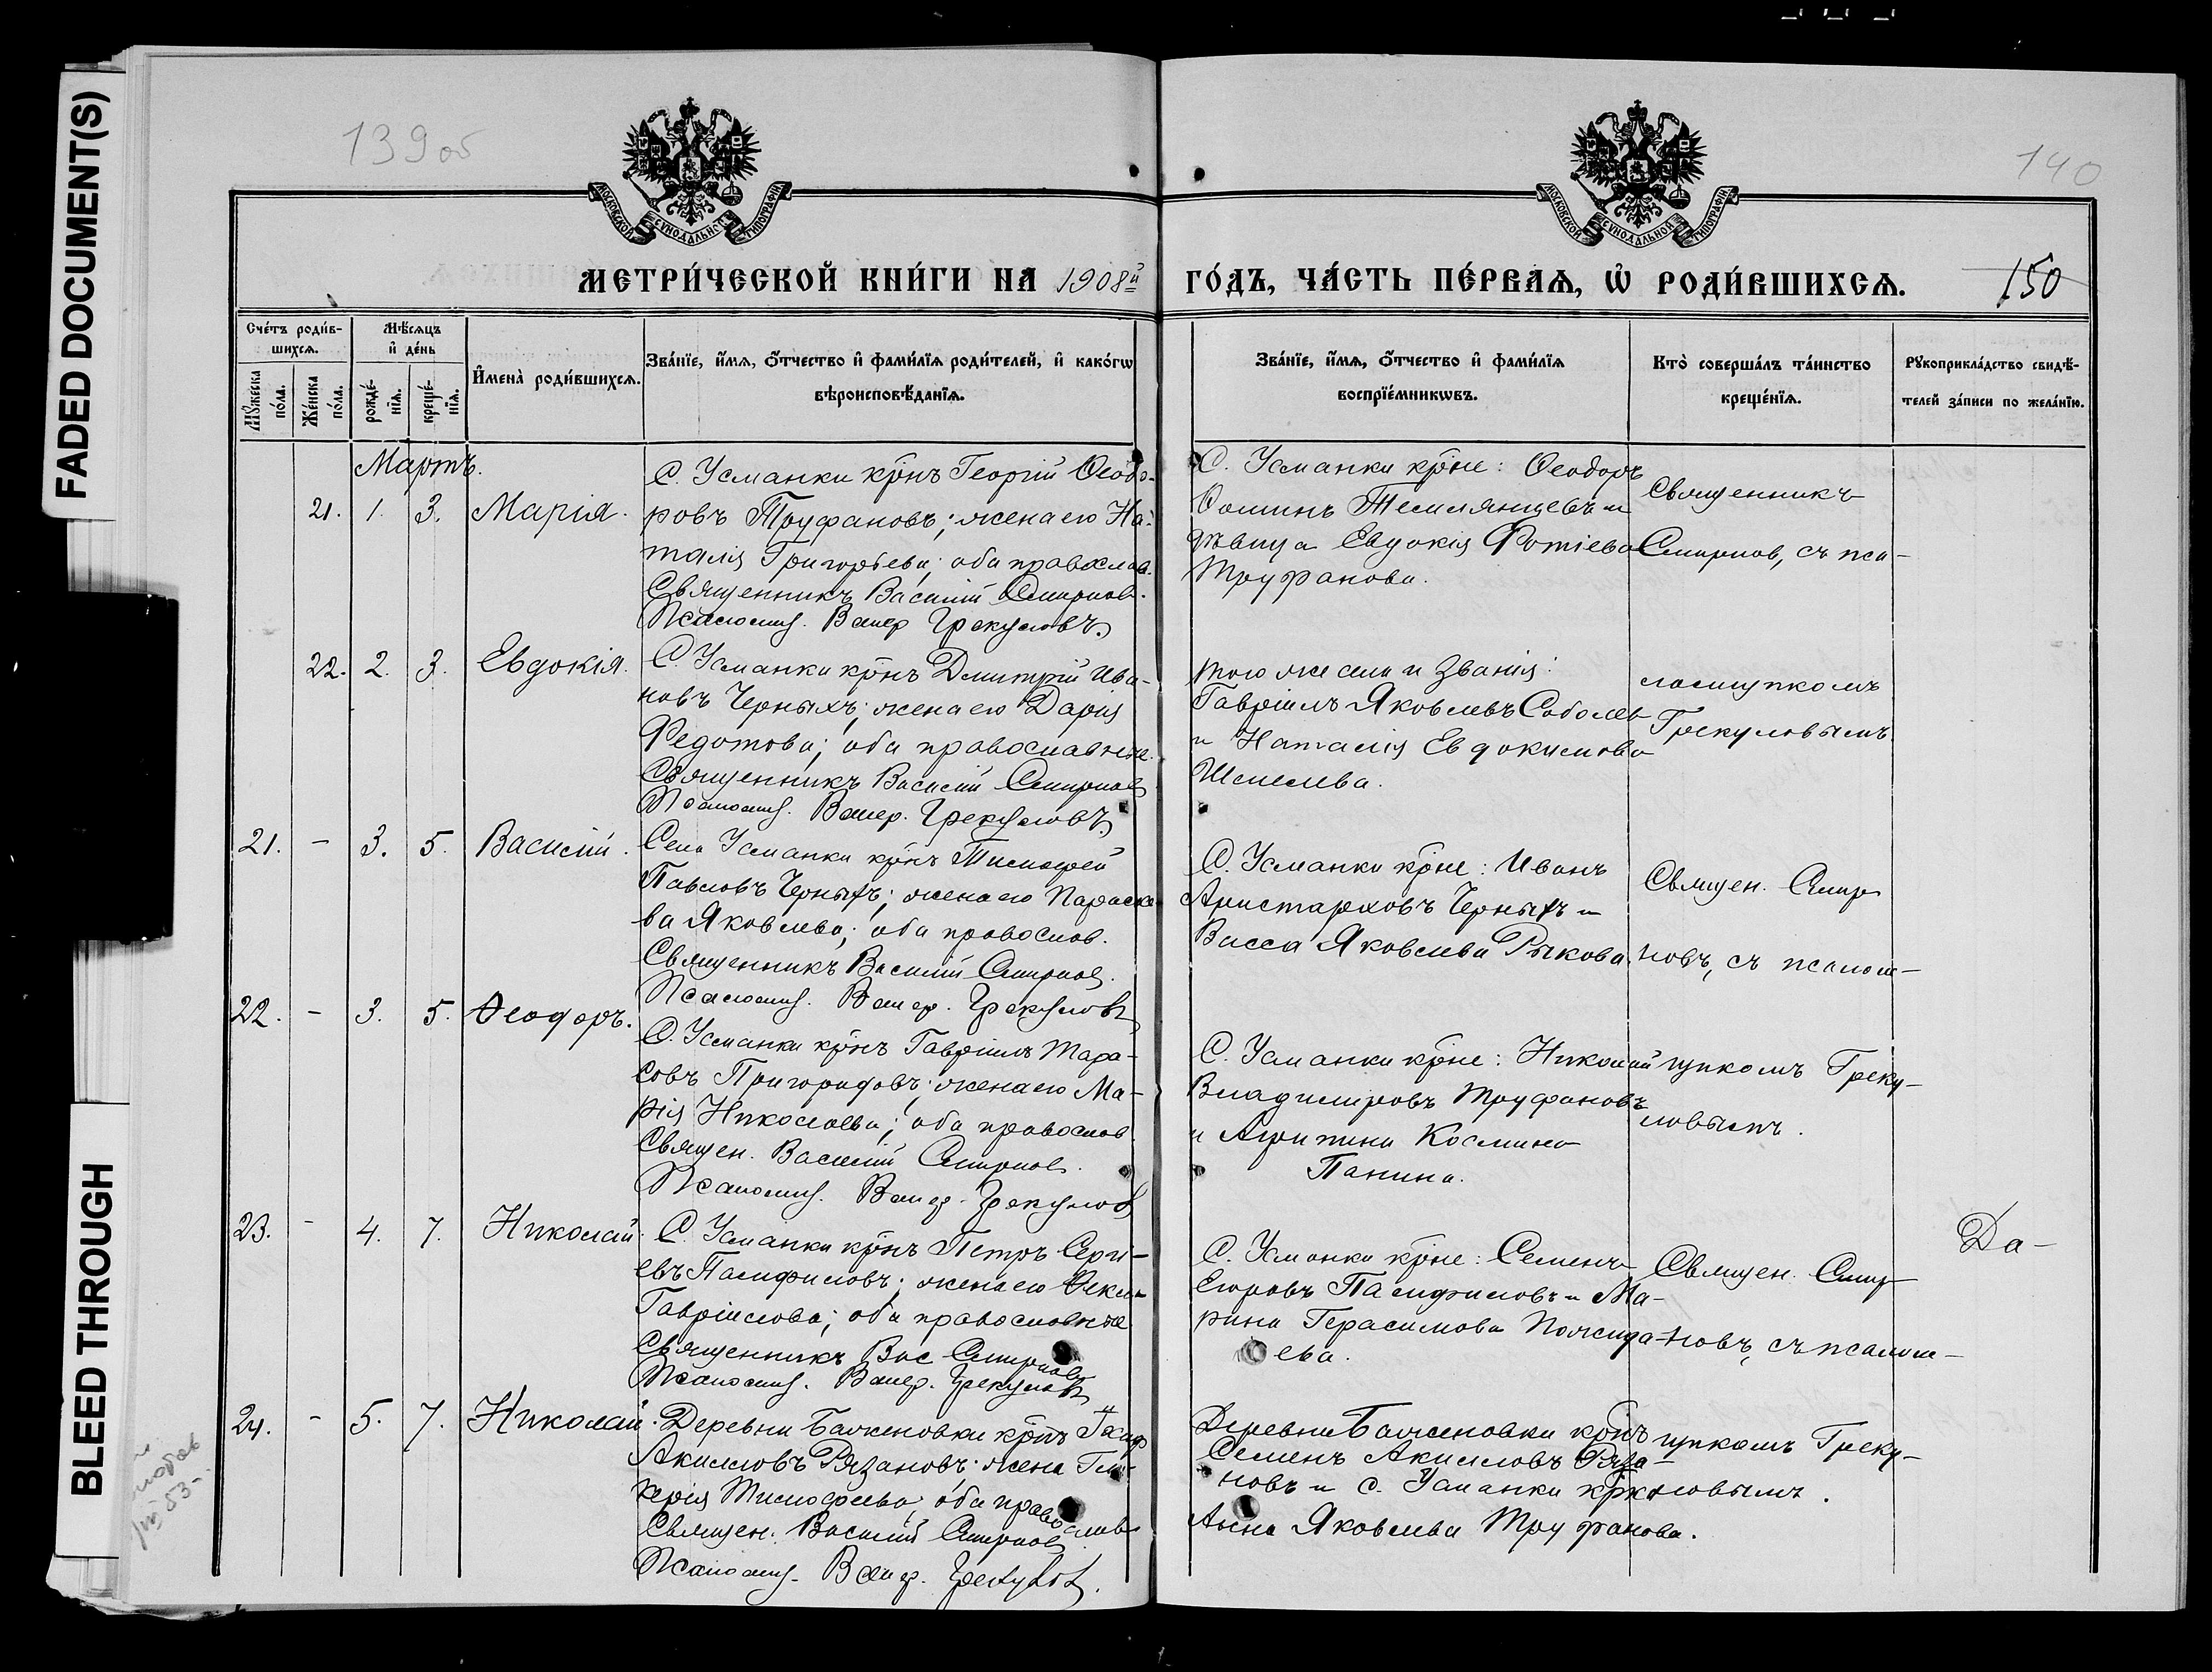 FADED DOCUMENT(S)
BLEED THROUGH
139 об
140
МОСКОВСКОЙ СѴНОДАЛЬНОЙ ТИПОГРАФІИ
МОСКОВСКОЙ СѴНОДАЛЬНОЙ ТИПОГРАФІИ
МЕТРИ́ЧЕСКОЙ КНИ́ГИ НА 1908й ГО́ДЪ, ЧА́СТЬ ПЕ́РВАѦ, Ѡ҆ РОДИ́ВШИХСѦ. 150
Сче́тъ роди́в-
шихсѧ.
Мꙋ́жеска
по́ла.
Же́нска
по́ла.
Мѣ́сѧцъ
и҆ де́нь
рожде́-
нїѧ.
креще́-
нїѧ.
И҆мена̀ роди́вшихсѧ.
Зва́нїе, и҆́мѧ, ѻ҆́тчество и҆ фами́лїѧ роди́телей, и҆ како́гѡ
вѣроисповѣ́данїѧ.
Зва́нїе, и҆́мѧ, ѻ҆́тчество и҆ фами́лїѧ
воспрїе́мникѡвъ.
Кто̀ соверша́лъ та́инство
креще́нїѧ.
Рꙋкоприкла́дство свидѣ́-
телей за́писи по жела́нїю.
Мартъ.
21. 1. 3. Марія.
С. Усманки крнъ Георгій Ѳеодо-
ровъ Труфановъ; жена его На-
талія Григорьева; оба православ.
Священникъ Василій Смирновъ.
Псаломщ. Валер Грекуловъ.
С. Усманки крне: Ѳеодоръ
Ѳоминъ Темлянцевъ и
дѣвица Евдокія Фотіева
Труфанова.
Священникъ
Смирнов, съ пса-
22. 2. 3. Евдокія.
С. Усманки крнъ Димитрій Ива-
новъ Черныхъ; жена его Дарія
Федотова; оба православные.
Священникъ Василій Смирновъ
Псаломщ. Валер. Грекуловъ
того же села и званія:
Гавріилъ Яковлевъ Соболев
и Наталія Евдокимова
Шепелева.
ломщикомъ
Грекуловымъ.
21. - 3. 5. Василій.
Села Усманки крнъ Тимофей
Павловъ Черныхъ; жена его Параске-
ва Яковлева; оба православ.
Священникъ Василій Смирнов.
Псаломщ. Валер. Грекуловъ
С. Усманки крне: Иванъ
Аристарховъ Черныхъ и
Васса Яковлева Рыкова.
Священ. Смир
новъ, съ псалом-
22. - 3. 5. Ѳеодоръ.
С. Усманки крнъ Гавріилъ Тара-
совъ Пригородовъ; жена его Ма-
рія Николаева; оба православ.
Священ. Василій Смирнов.
Псаломщ. Валер. Грекулов
С. Усманки крне: Николай
Владиміровъ Труфановъ
и Агрипина Космина
Панина.
щикомъ Греку-
ловымъ.
23. - 4. 7. Николай.
С. Усманки крнъ Петръ Сергі-
евъ Памфиловъ; жена его Ѳекла
Гавріилова; оба православные
Священникъ Вас Смирновъ
Псаломщ. Валер. Грекуловъ
С. Усманки крне: Семенъ
Егоровъ Памфиловъ и Ма-
рина Герасимова Пожида-
ева.
Священ. Смир
новъ, съ псалом-
Да-
24. - 5. 7. Николай.
Деревни Баженовки крнъ
Акиловъ Рязановъ; жена Гли-
керія Тимофеева; оба православ
Священ. Василій Смирнов.
Псаломщ. Валер. Грекулов.
Деревни Баженовки крнъ
Семенъ Акиловъ Ряза-
новъ и с. Усманки крнка
Анна Яковлева Труфанова.
щикомъ Греку-
ловымъ.